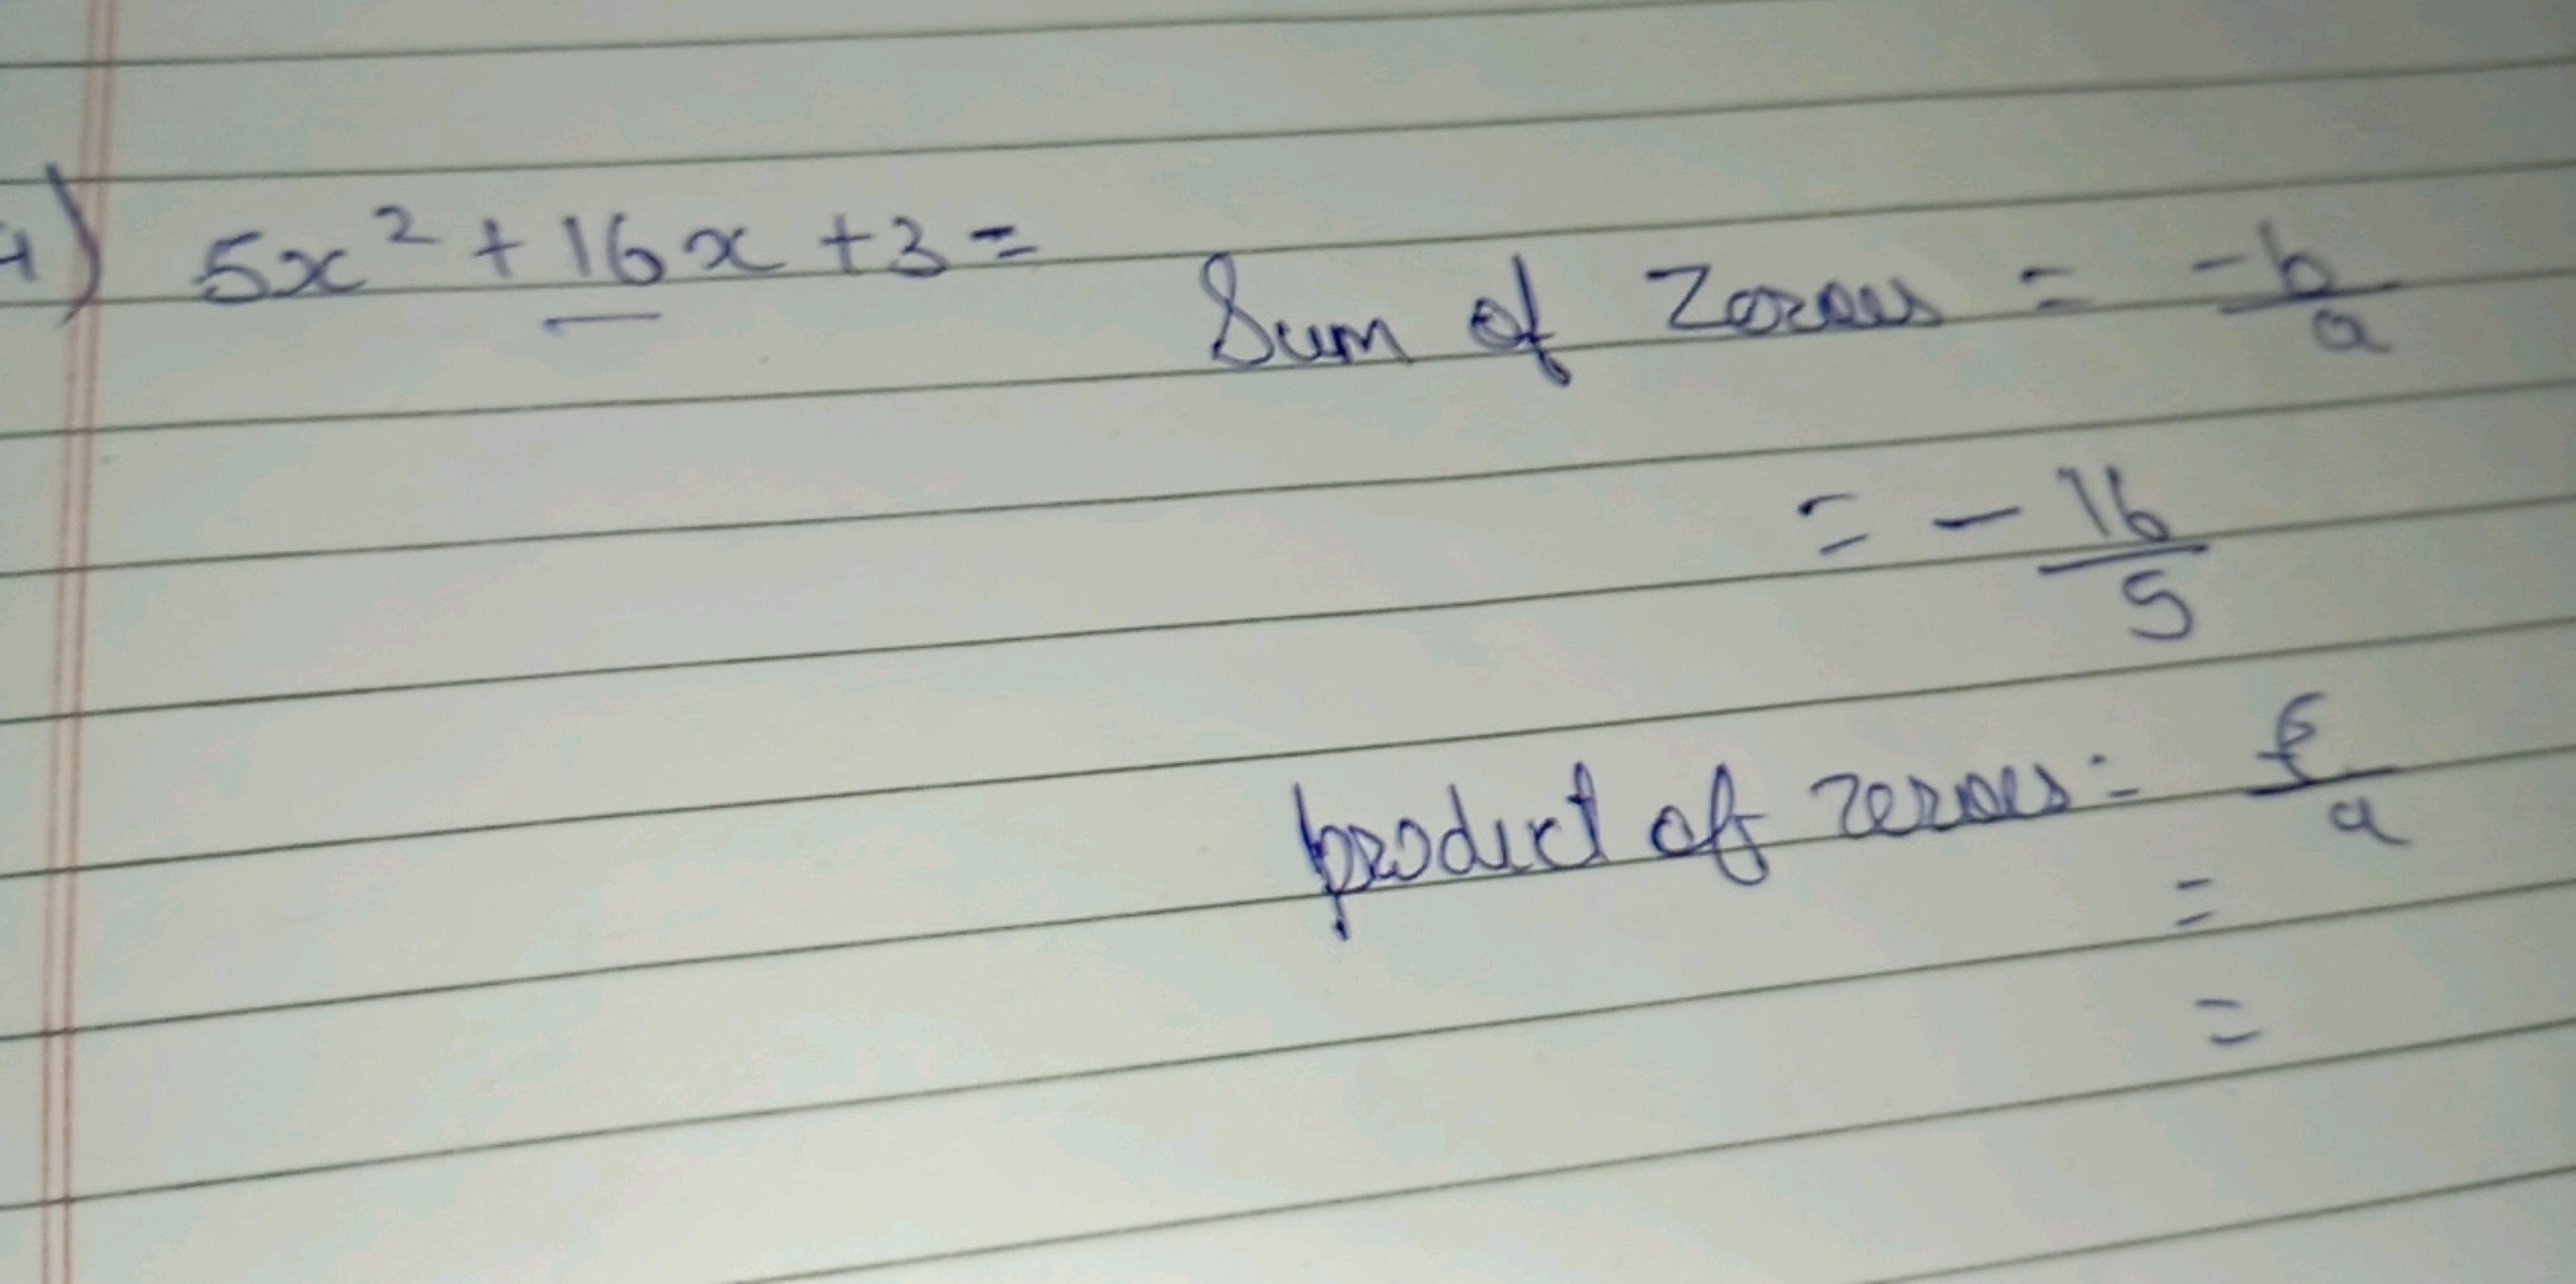 4) 5x² + 16x + 3 =
Sum of Zeroes = -b/a
= - 16/5
product of zeroes = c/a
=
=